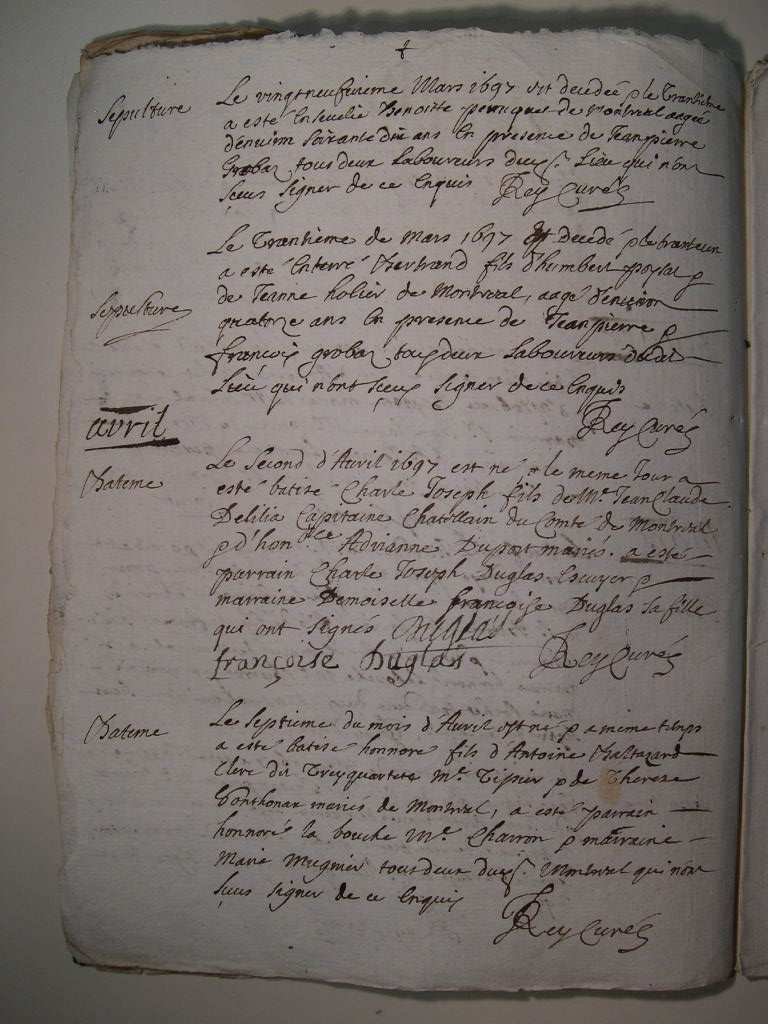 Sepulture
Le vingtneufvieme Mars 1697 est decedeé p le Trantieme
a esté Ensevelie Benoitte peruquet de Montreal aagée
d'environ Soixante dix ans En presence de Jeanpierre
Grobaz tousdeux Laboureurs dud.t Lieu qui n'ont
sceus signer de ce Enquis Rey Curé
Sepulture
Le Trantieme de Mars 1697 est decedé p le tranteun
a esté Enterré Bertrand fils d'humbert
de Jeanne de Montreal, aagé d'environ
quatorze ans En presence de Jeanpierre p
françois grobaz tousdeux Laboureurs dudit
Lieu qui n'ont sceus signer de ce Enquis
Rey Curé
avril
Bateme
Le Second d'Avril 1697 est né p le meme Jour a
esté batisé Charle Joseph fils de Mr. Jean Claude
Delilia Capitaine Chatellain du Comte de Montreal
p d'hon.ble Adrianne Duport mariés. a esté
parrain Charle Joseph Duglas Escuyer p
marraine Demoiselle françoise Duglas sa fille
qui ont signés Duglas
françoise Duglas Rey Curé
Bateme
Le Septieme du mois d'Avril est né p a meme temps
a esté batisé honnoré fils d'Antoine Baltazard
Clerc dit Mr. Tissier p de Therese
mariés de Montreal, a esté parrain
honnoré la bouche Mr. Charron p marraine
Marie Mugnier tousdeux dud.t Montreal qui n'ont
sceus signer de ce Enquis
Rey Curé